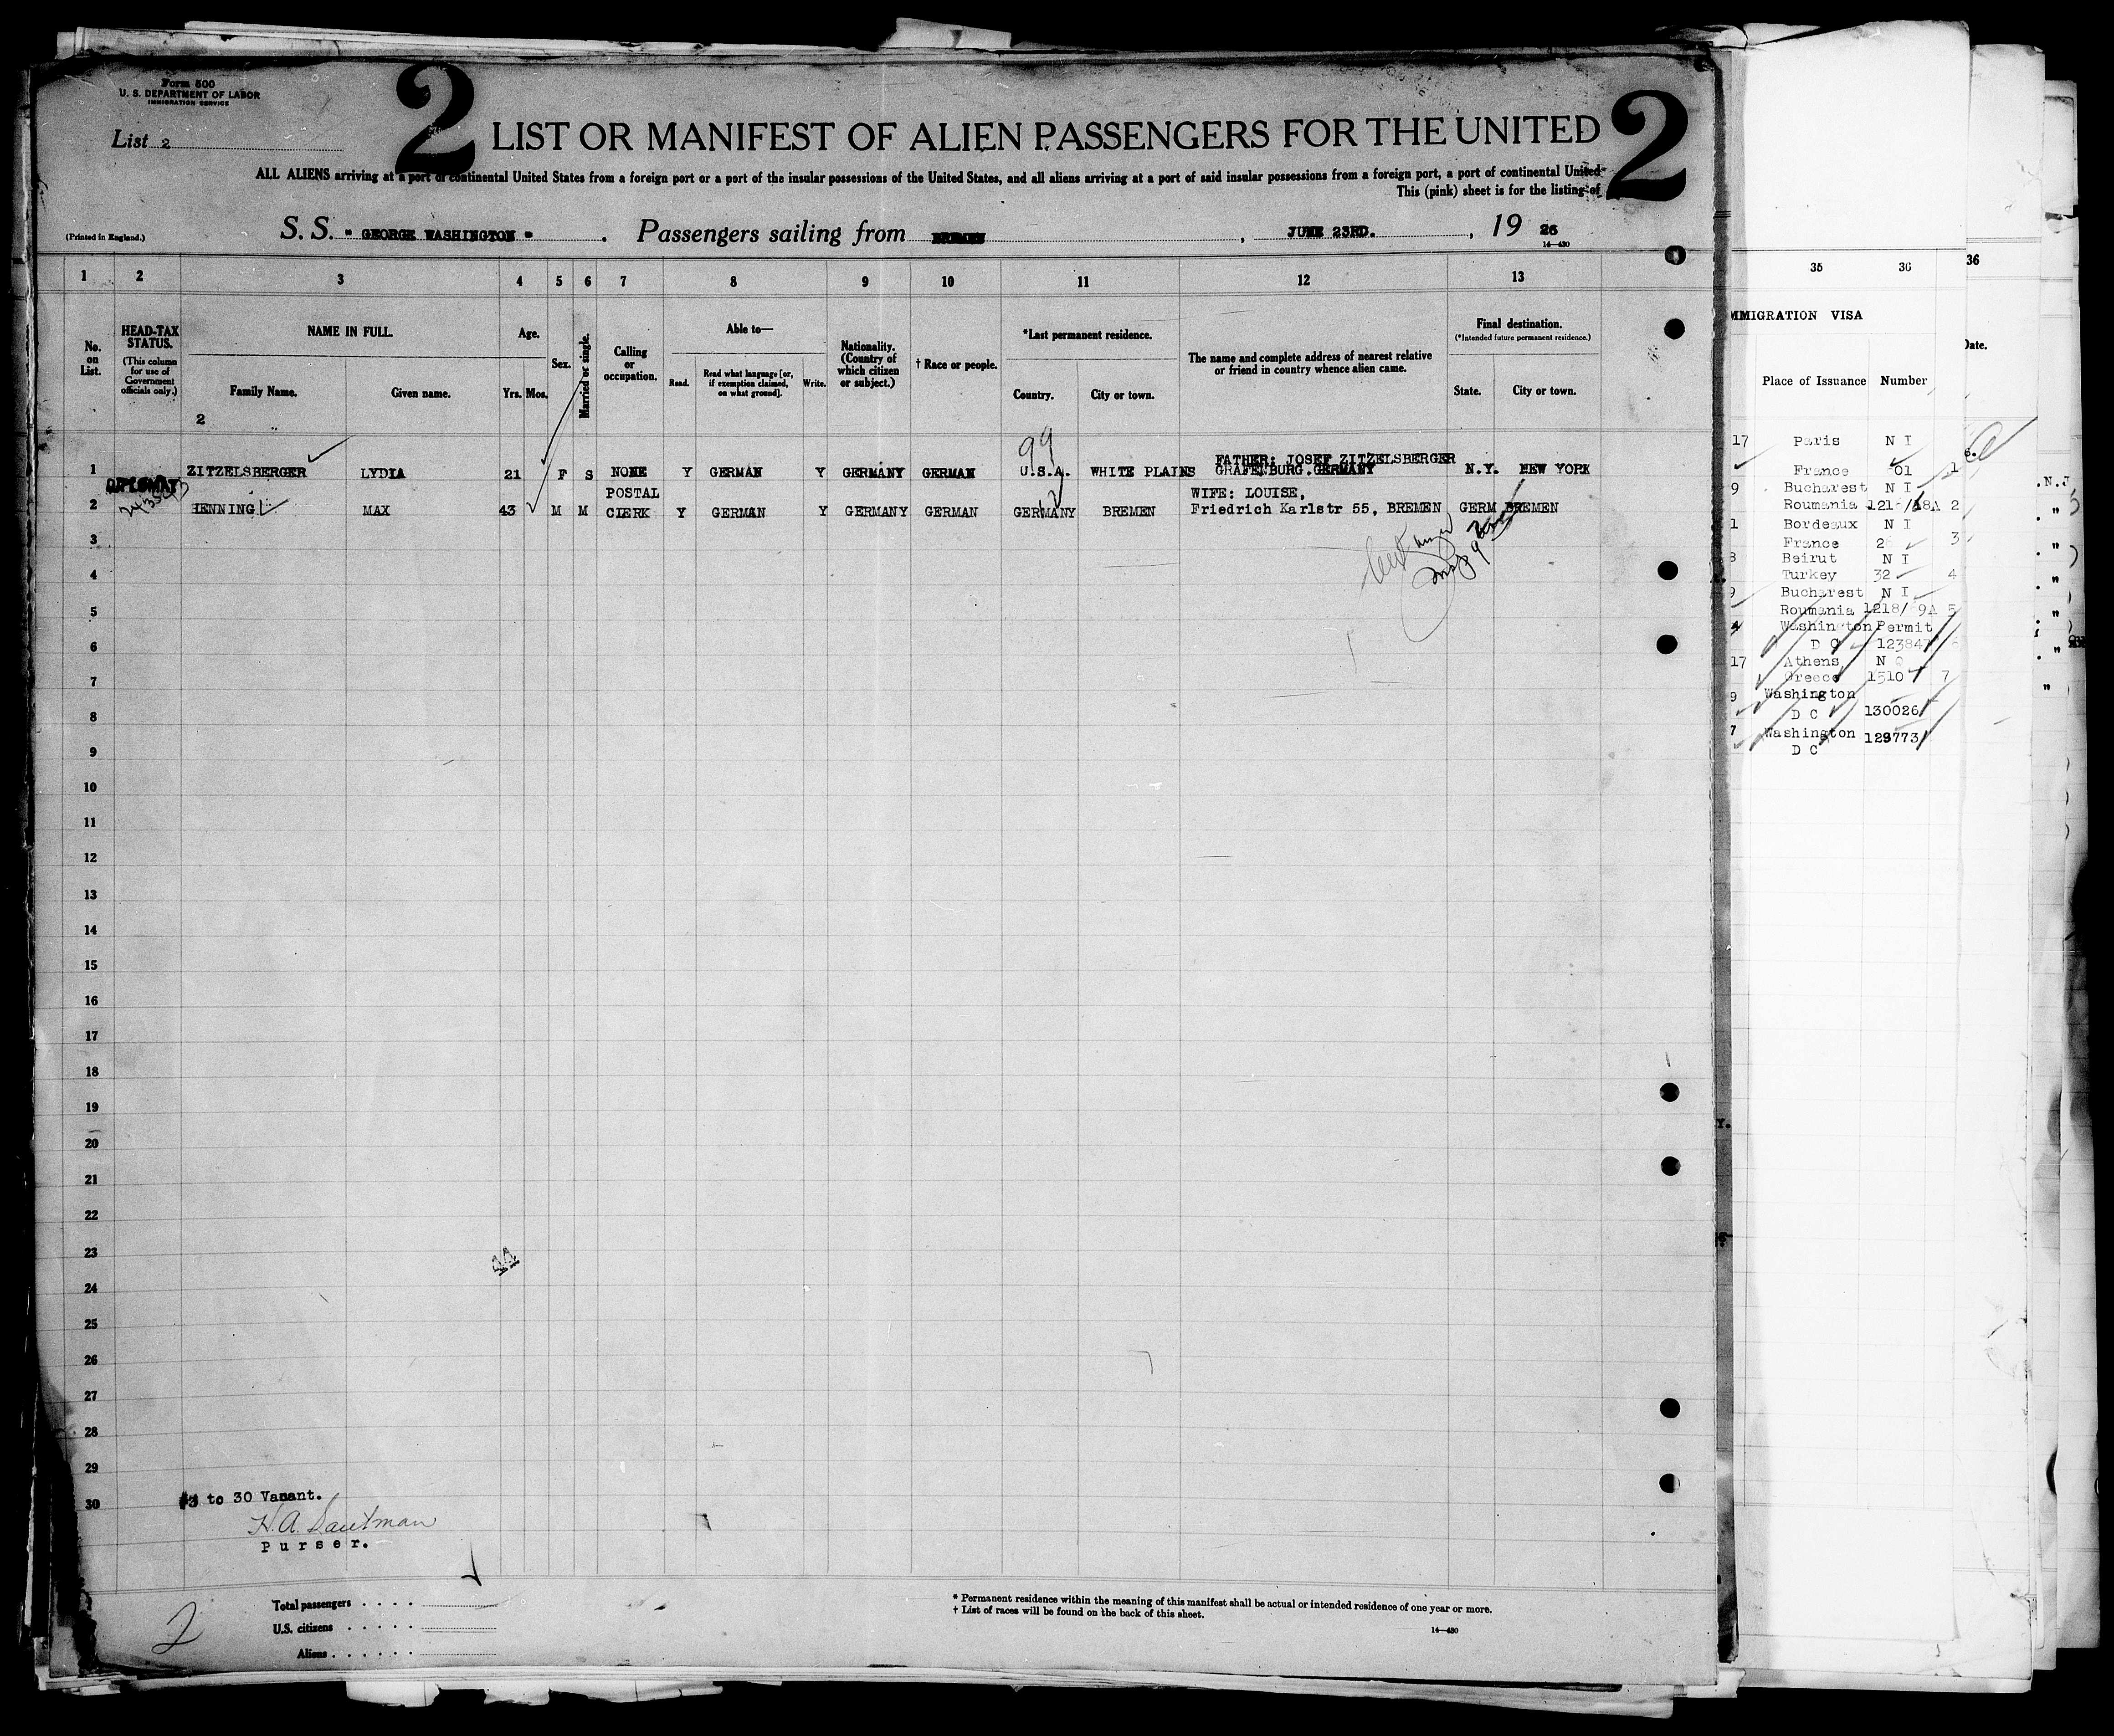 Form 500
U. S. DEPARTMENT OF LABOR
IMMIGRATION SERVICE
List 2
2 LIST OR MANIFEST OF ALIEN PASSENGERS FOR THE UNITED 2
ALL ALIENS arriving at a port of continental United States from a foreign port or a port of the insular possessions of the United States, and all aliens arriving at a port of said insular possessions from a foreign port, a port of continental United
This (pink) sheet is for the listing of
(Printed in England.)
S. S. " GEORGE WASHINGTON " . Passengers sailing from BREMEN , JUNE 23RD. , 19 26
14—430
1 2 3 4 5 6 7 8 9 10 11 12 13
No. on List.
HEAD-TAX STATUS.
(This column for use of Government officials only.)
NAME IN FULL.
Family Name. Given name.
2
Age.
Yrs. Mos.
Sex.
Married or single.
Calling or occupation.
Able to—
Read. Read what language [or, if exemption claimed, on what ground]. Write.
Nationality. (Country of which citizen or subject.)
† Race or people.
*Last permanent residence.
Country. City or town.
The name and complete address of nearest relative or friend in country whence alien came.
Final destination.
(*Intended future permanent residence.)
State. City or town.
99
FATHER: JOSEF ZITZELSBERGER
1 ZITZELSBERGER LYDIA 21 F S NONE Y GERMAN Y GERMANY GERMAN U.S.A. WHITE PLAINS GRAFENBURG.GERMANY N.Y. NEW YORK
DIPLOMAT
POSTAL
WIFE: LOUISE,
2 HENNING MAX 43 M M CIERK Y GERMAN Y GERMANY GERMAN GERMANY BREMEN Friedrich Karlstr 55, BREMEN GERM BREMEN
3
4
5
6
7
8
9
10
11
12
13
14
15
16
17
18
19
20
21
22
23
24
25
26
27
28
29
30
#3 to 30 Vacant.
Purser.
Total passengers . . . .
U.S. citizens . . . . .
Aliens . . . . . .
2
* Permanent residence within the meaning of this manifest shall be actual or intended residence of one year or more.
† List of races will be found on the back of this sheet.
14—430
35 36 36
MMIGRATION VISA
Date.
Place of Issuance Number
17 Paris N I
France 01 1
9 Bucharest N I
Roumania 2
1 Bordeaux N I
France 3
8 Beirut N I
Turkey 32 4
9 Bucharest N I
Roumania 1218/ 9A 5
Washington Permit
D C 12384
17 Athens N
Greece 1510 7
9 Washington
D C 130026
7 Washington 129773
D C